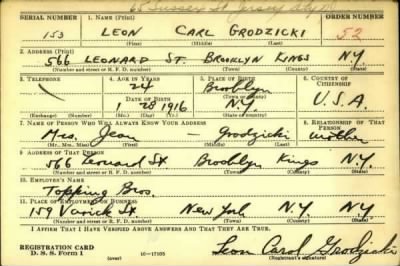 65 Sussex St Jersey City N
SERIAL NUMBER 1. NAME (Print) ORDER NUMBER
153 LEON CARL GRODZICKI 52
(First) (Middle) (Last)
2. ADDRESS (Print)
566 LEONARD ST. BROOKLYN KINGS N.Y.
(Number and street or R. F. D. number) (Town) (County) (State)
3. TELEPHONE 4. AGE IN YEARS 5. PLACE OF BIRTH 6. COUNTRY OF CITIZENSHIP
24 Brooklyn
DATE OF BIRTH (Town or county)
1 28 1916 N.Y. U.S.A.
(Exchange) (Number) (Mo.) (Day) (Yr.) (State or country)
7. NAME OF PERSON WHO WILL ALWAYS KNOW YOUR ADDRESS 8. RELATIONSHIP OF THAT PERSON
Mrs. Jean — Grodzicki mother
(Mr., Mrs., Miss) (First) (Middle) (Last)
9. ADDRESS OF THAT PERSON
566 Leonard St Brooklyn Kings N.Y.
(Number and street or R. F. D. number) (Town) (County) (State)
10. EMPLOYER'S NAME
Topping Bros.
11. PLACE OF EMPLOYMENT OR BUSINESS
159 Varick St. New York N.Y. N.Y.
(Number and street or R. F. D. number) (Town) (County) (State)
I AFFIRM THAT I HAVE VERIFIED ABOVE ANSWERS AND THAT THEY ARE TRUE.
REGISTRATION CARD
D. S. S. Form 1 (over) 16—17105 Leon Carol Grodzicki
(Registrant's signature)